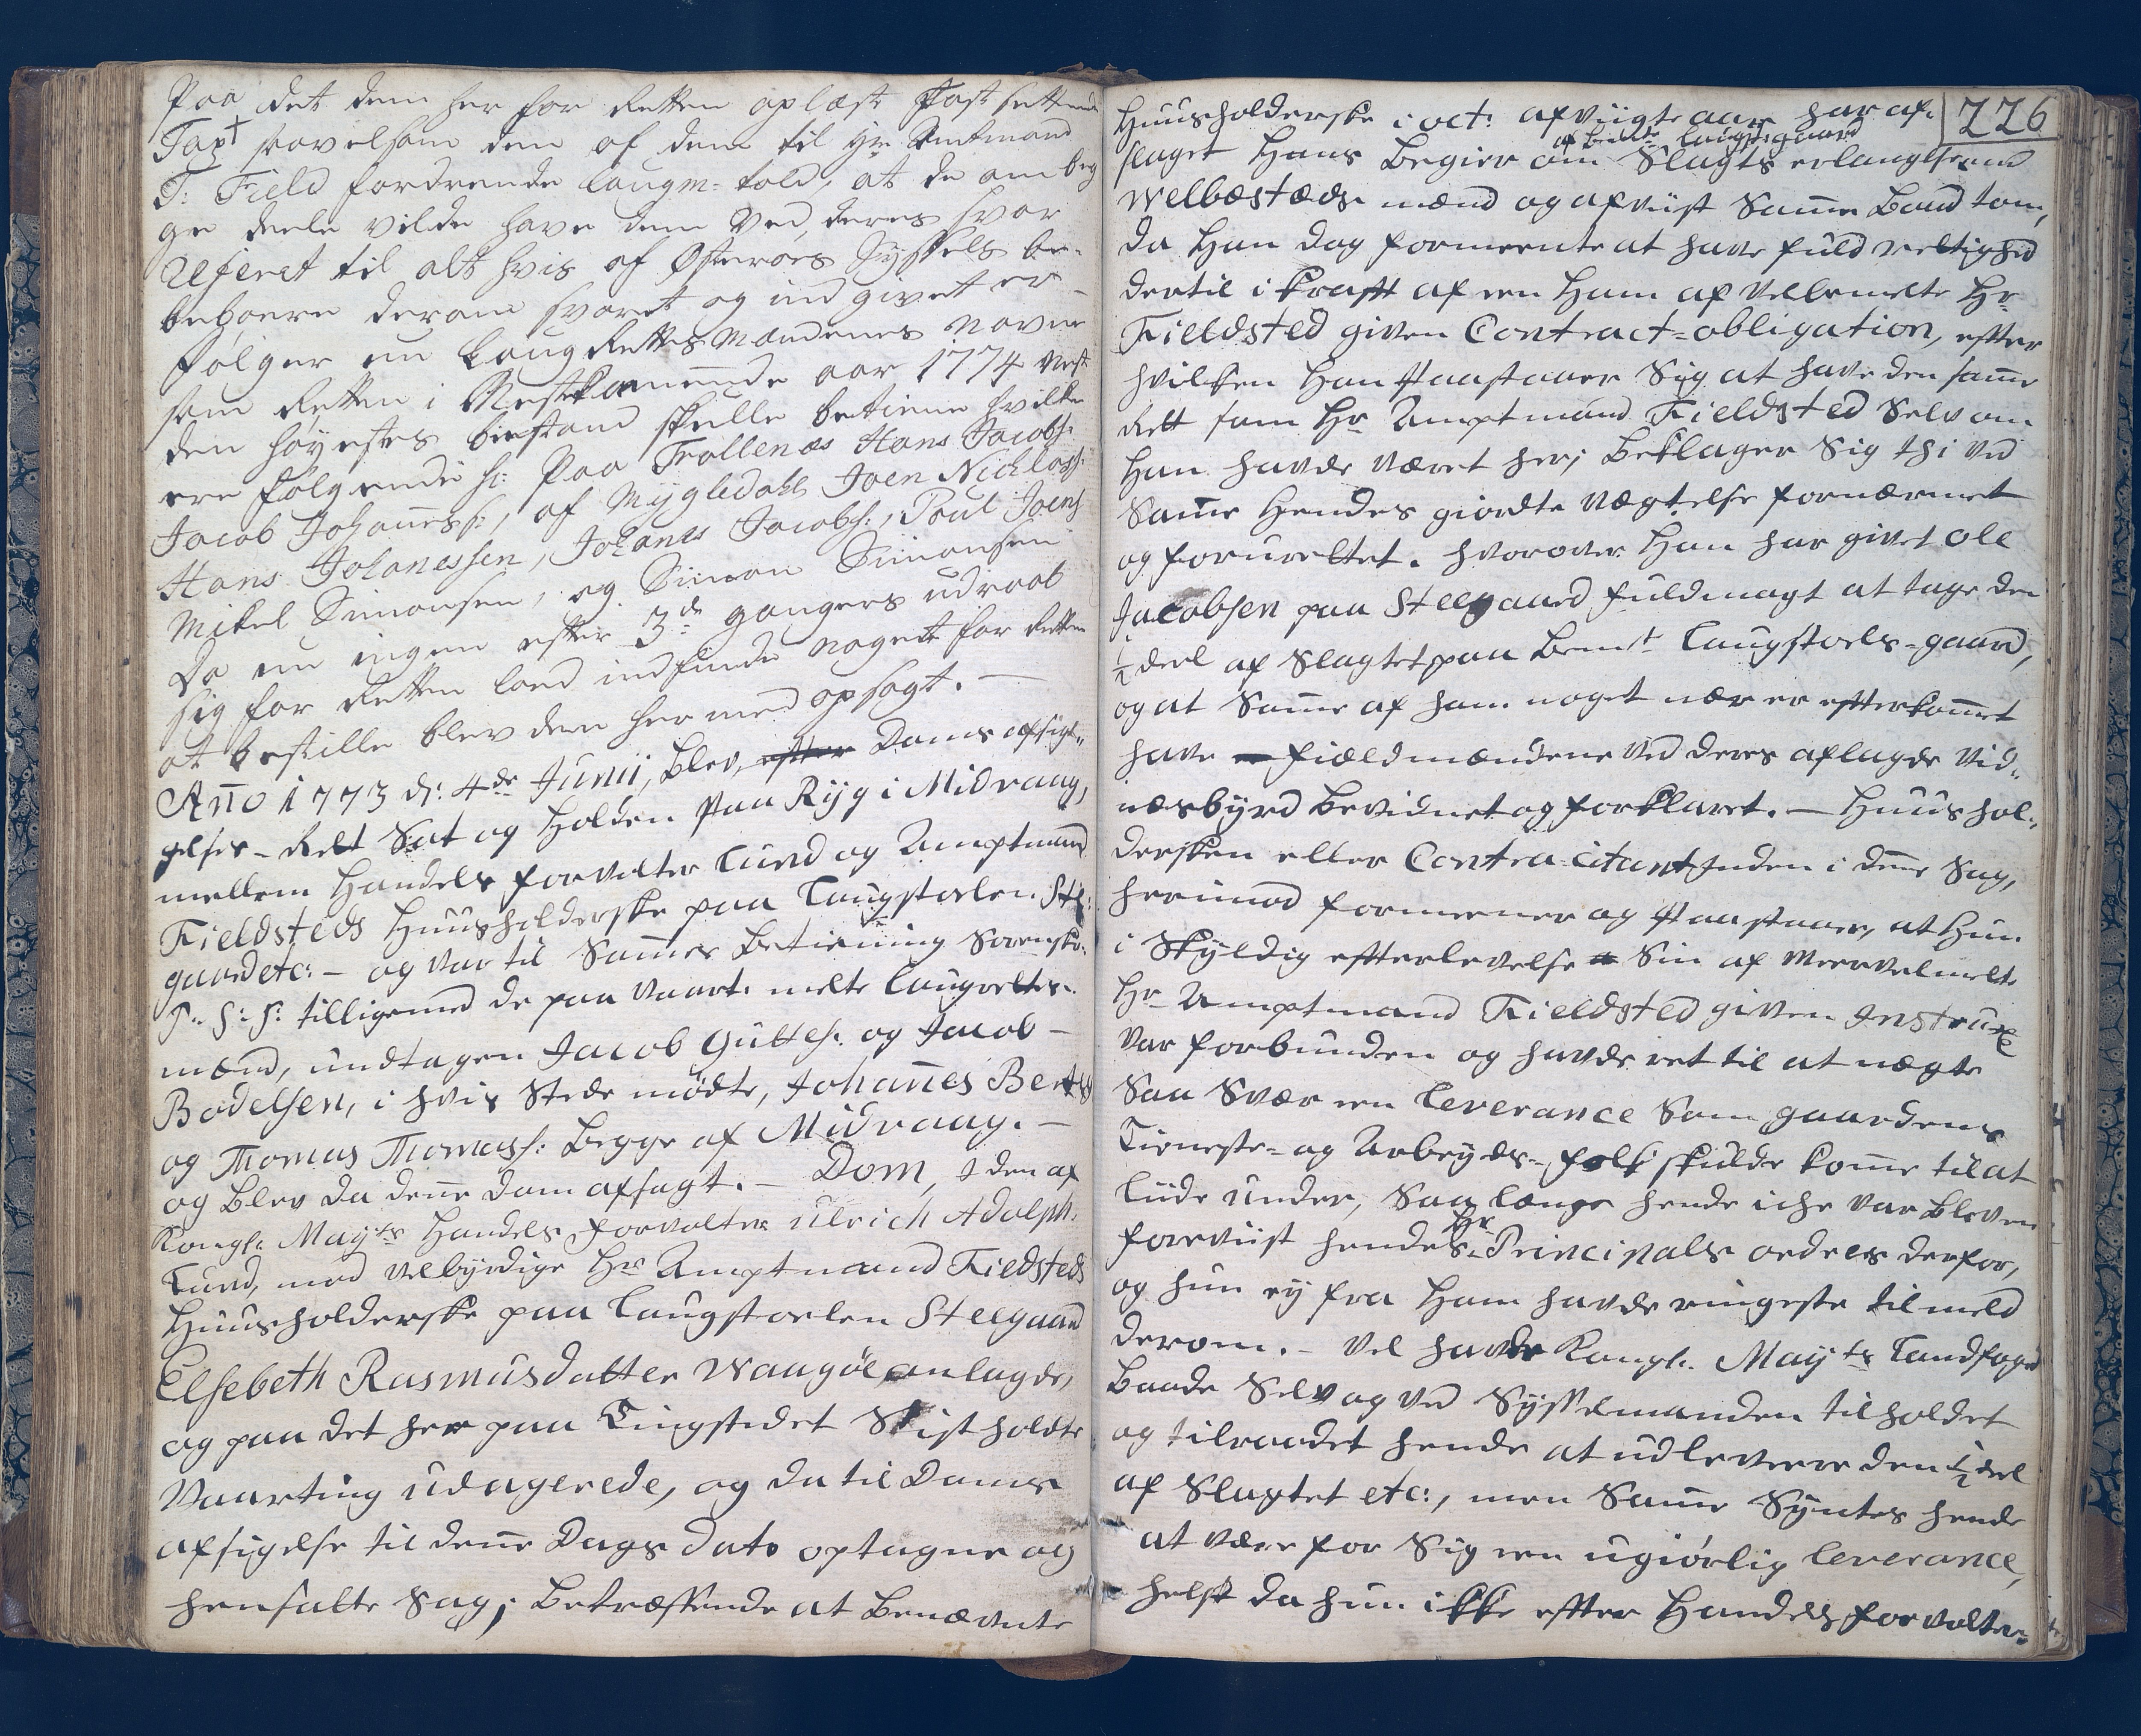 Paa det dem her for Retten oplæst fastsettende
Taxt saavelsom den af dem til Hr Amtmand
T: Field fordrende laugm: told, at de om beg¬
ge deele vilde have dem ved, deres svar
Refereret til alt hvis af Østerøes Syssels be¬
beboere derom svaret og ind givet er –
følger nu LaugRettesMændenes Navne
som Retten i Nestkommende aar 1774 nest
den høyestes bistand skulle betiene hvilke
ere følgende s: Paa Trøllenæs Hans Jacobs:
Jacob Johanness:, af Mygledahl Joen Nichlass:
Hans Johanessen, Johanes Jacobs:, Poul Joens:
Mikel Simonsen, og Simon Simonsen
Da nu ingen efter 3de gangers udraab
sig for Retten loed indfinde noget for Retten
at bestille blev den her med opsagt. –
Anno 1773 d: 4de Junii, blev, efter Doms afsigel„
gelses – Ret Sat og Holden paa Ryg i Midvaag,
mellem Handels forvalter Lund og Amptmand
Fieldsteds Huusholderske paa Laugstoelen Stÿ:
gaard etc: – og var til Sammes betiening Sorenskr:
S: H: H: tilligemed de paa Vaart. melte Laugrettes¬
mænd, undtagen Jacob Guttes: og Jacob –
Bodelsen, i hvis Stede mødte, Johannes Berts:
og Thomas Thomass: begge af Midvaag. –
og blev da denne dom afsagt. – Dom, I den af
Kongl: Mayts Handels forvalter Ulrich Adolph:
Lund, mod Velbyrdige Hr Amptmand Fieldsteds
Huusholderske paa Laugstoelen Steegaard
Elsebeth Rasmusdatter Waagøe, anlagde,
og paa det her paa Tingstedet Sist holdte
Vaarting udagerede, og da til Doms
afsigelse til denne Dags Dato optagne og
henfalte Sag; betræffende at benævnte
226
Huusholderske i oct: afvigte aar har af¬
af bemte laugstoels gaard
slaget Hans begier om Slagts erlangelse med
Welbæstæds mænd og afviist Samme Baud tom,
da Han dog formeente at have fuld rettighed
dertil i Kraft af een Ham af Velbemelte Hr
Fieldsted given Contract-obligation, efter
hvilken Han Paastaaer Sig at have den samme
Rett som Hr Amptmand Fieldsted Selv om
Han havde været her; Beklager Sig thi ved
Samme Hendes giordte Nægtelse fornærmet
og foruretted. hvorover Han har givet Ole
Jacobsen paa Steegaard fuldmagt at tage den
½ deel af Slagtet paa bemt Laugstoels-gaard,
og at Samme af ham noget nær er efterkommet
have Fieldmændene ved deres aflagde Vid„
nesbyrd bevidnet og forklaret. – Huushol„
dersken eller Contra-Citantinden i denne Sag,
herimod formeener og Paastaaer, at Hun
i Skyldig efterlevelse Sin af Meervelmelte
Hr Amptmand Fieldsted given Instrux
var forbunden og havde ret til at nægte
Saa Svær een Leverance Som gaardens
Tieneste- og Arbeyds-folk skulde komme til at
liide under, Saa længe hende iche var bleven
foreviist hendes Hr Principals ordres derfor,
og hun ey fra Ham havde ringeste tilmeld
derom. – Vel havde Kongl: Mayts Landfoged
baade Selv og ved Sysselmanden tilholdet
og tilraadet hende at udlevere den ½ deel
af Slagtet etc:, men Samme Syntes hende
at være for Sig een ugiørlig Leverance,
helst da hun ikke efter Handels forvalter¬